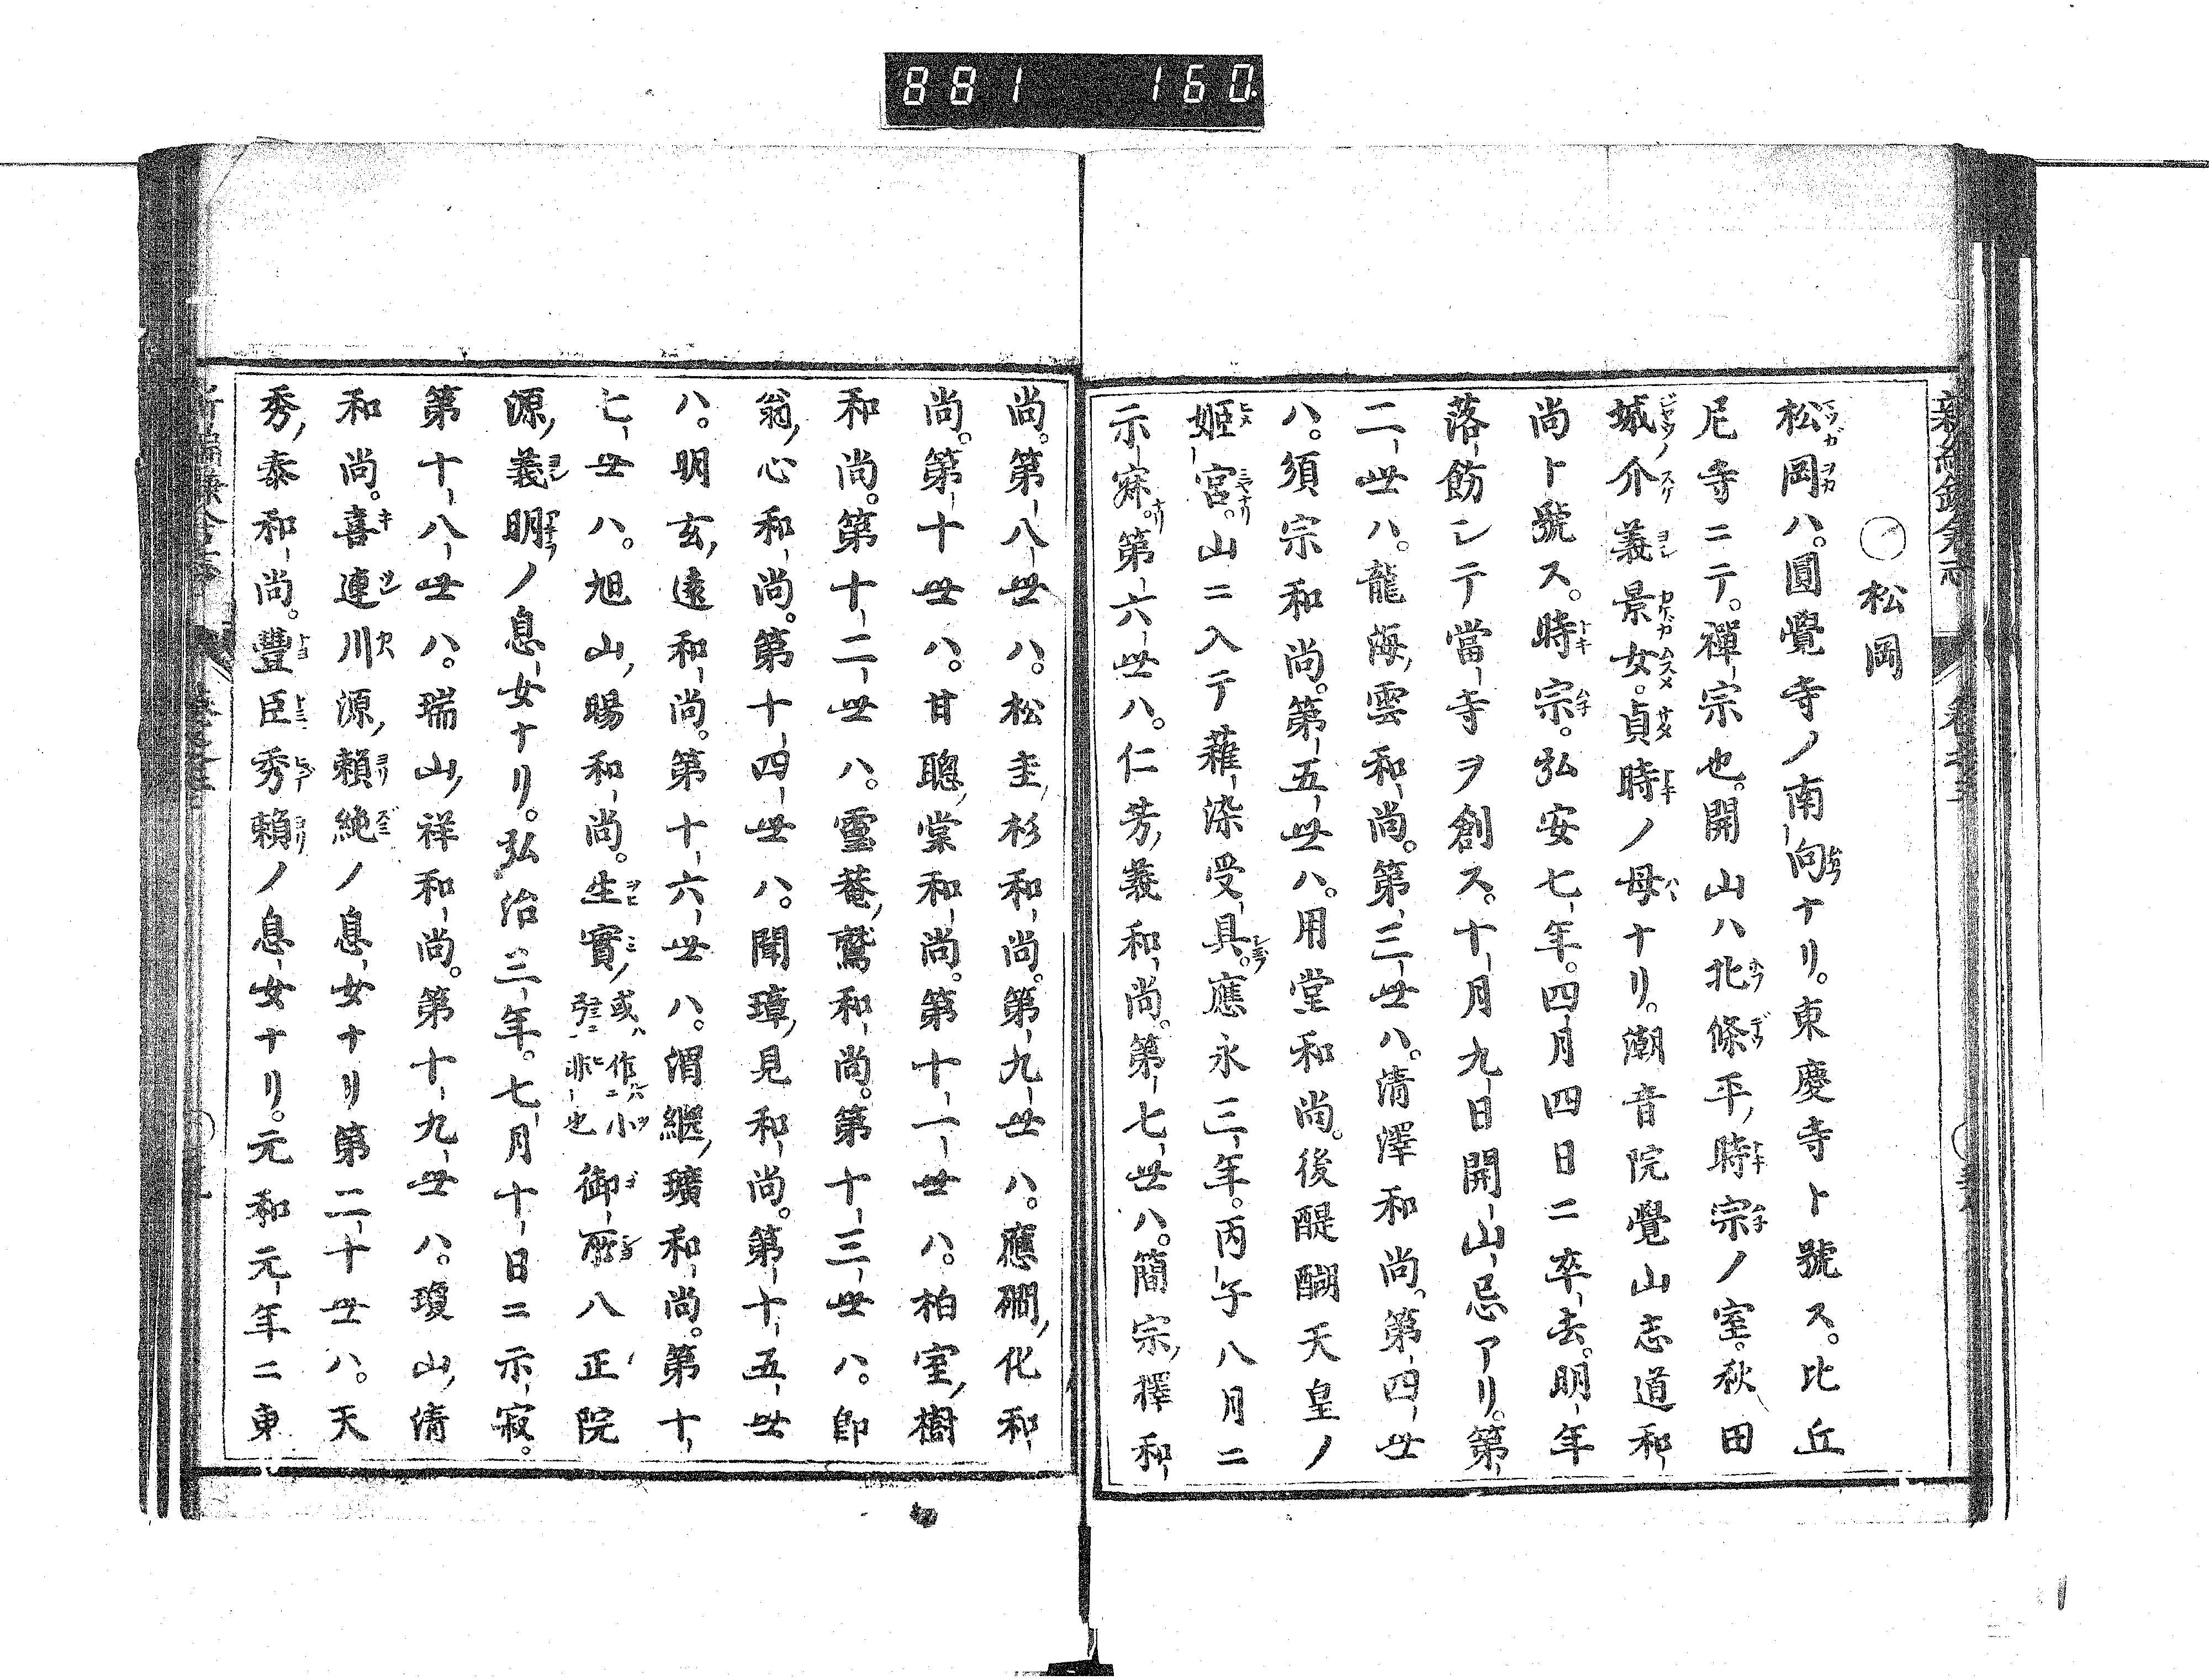 881 160
○松岡
松岡ハ。圓覺寺ノ南向ナリ。東慶寺ト號ス。比丘
尼寺ニテ。禪宗也。開山ハ北條平時宗ノ室。秋田
城介義景女。貞時ノ母ナリ。潮音院覺山志道和
尚ト號ス。時宗。弘安七年。四月四日ニ卒去。明年
落飾シテ當寺ヲ創ス。十月九日開山忌アリ。第
二世ハ。龍海雲和尚。第三世ハ。清澤和尚。第四世
ハ。須宗和尚。第五世ハ。用堂和尚。後醍醐天皇ノ
姬宮。山ニ入テ薙染受具。應永三年。丙子八月ニ
示寂。第六世ハ。仁芳義和尚。第七世ハ。簡宗擇和
尚。第八世ハ。松圭杉和尚。第九世ハ。應磵化和
尚。第十世ハ。甘聰棠和尚。第十一世ハ。柏室樹
和尚。第十二世ハ。靈菴鷲和尚。第十三世ハ。卽
翁心和尚。第十四世ハ。聞璋見和尚。第十五世
ハ。明玄遠和尚。第十六世ハ。渭繼璜和尚。第十
七世ハ。旭山暘和尚。生實或ハ作小弓非也御所八正院
源義明ノ息女ナリ。弘治三年。七月十日ニ示寂。
第十八世ハ。瑞山祥和尚。第十九世ハ。瓊山清
和尚。喜連川源賴純ノ息女ナリ第二十世ハ。天
秀泰和尚。豐臣秀賴ノ息女ナリ。元和元年ニ東